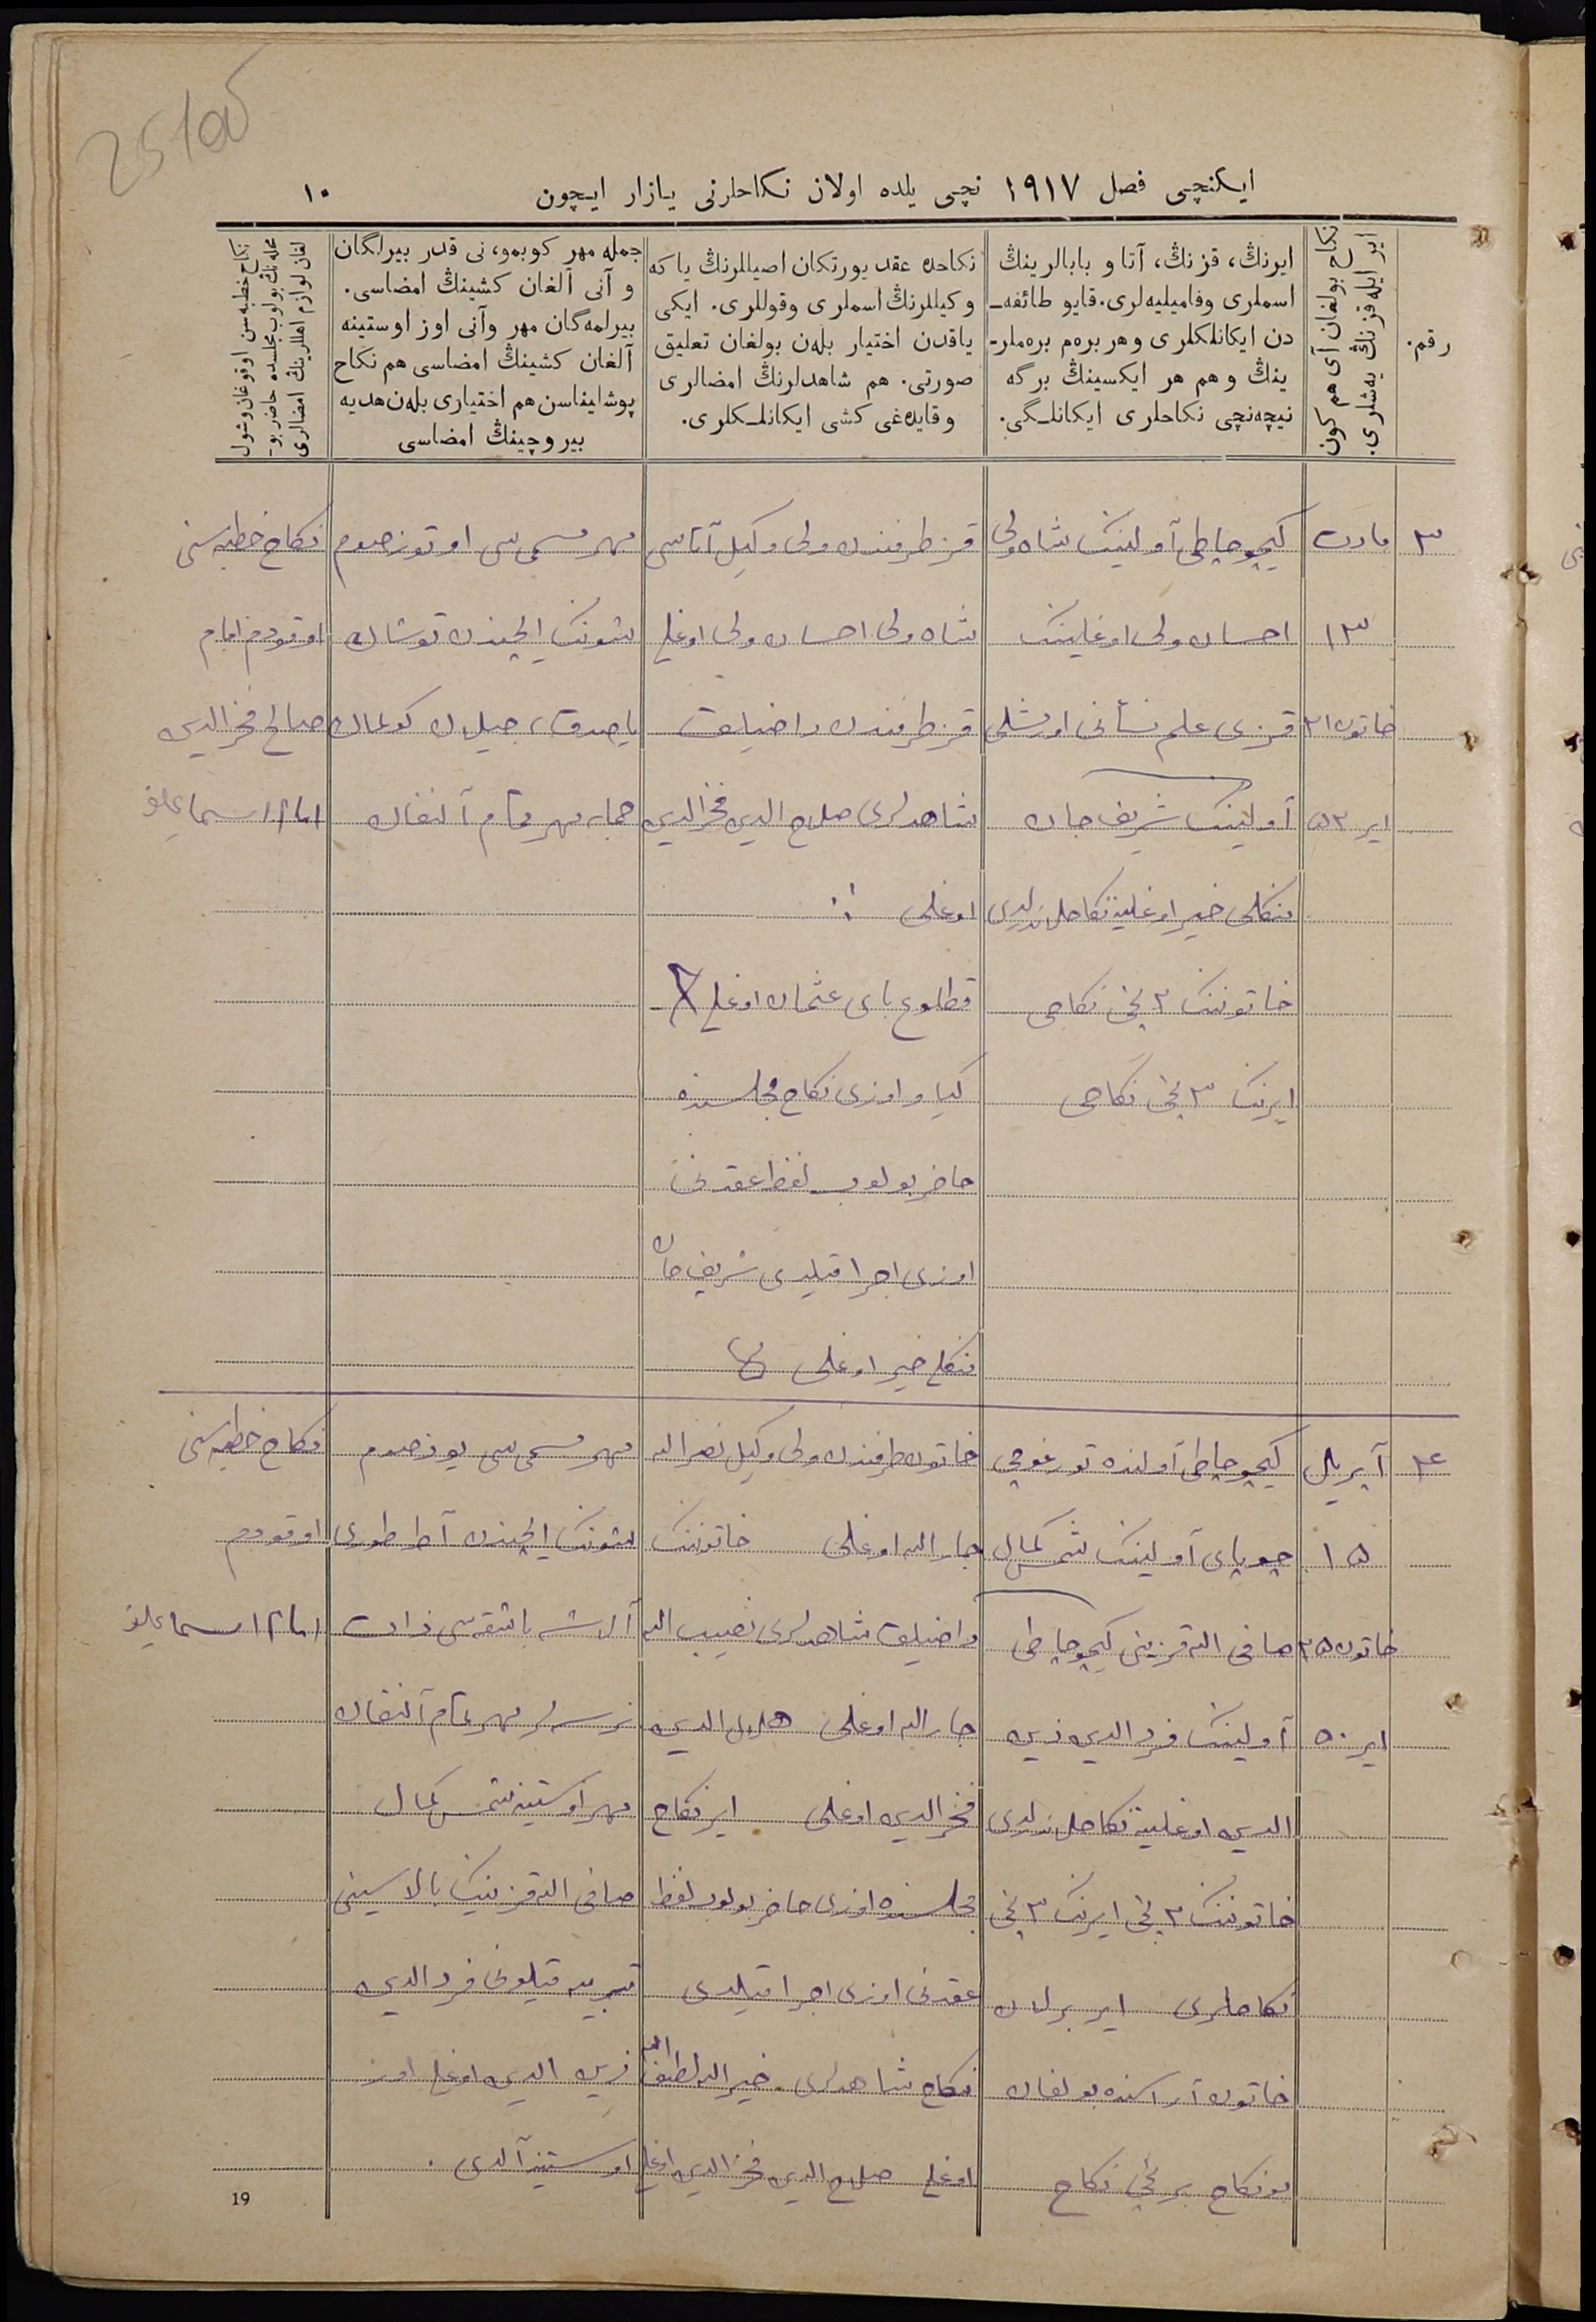 25 об
ایکنچی فصل ١٩١٧ نچی یلده اولان نکاحلرنی یازار ایچون
١٠
رقم.
نکاح بولغان آی هم کون
ایر ایله قزنڭ یەشلری.
ایرنڭ، قزنڭ، آتا و بابالرینڭ
اسملری وفامیلیەلری. قایو طائفه‌ـ
دن ایکانلکلری و هر برەم برەملرـ
ینڭ و هم هر ایکسینڭ برگه
نیچەنچی نکاحلری ایکانلـگی.
نکاحده عقد یورتکان اصیللرنڭ یا که
وکیللرنڭ اسملری وقوللری. ایکی
یاقدن اختیار بلەن بولغان تعلیق
صورتی. هم شاهدلرنڭ امضالری
وقایدەغی کشی ایکانلـکلری.
جمله مهر کوبمو، نی قدر بیرلگان
و آنی آلغان کشینڭ امضاسی.
بیرلمەگان مهر وآنی اوز اوستینه
آلغان کشینڭ امضاسی هم نکاح
پوشلیناسن هم اختیاری بلەن هدیه
بیروچینڭ امضاسی
نکاح خطبه‌سن اوقوغان وشول
محله‌نڭ بولوب مجلسده حاضر بوـ
لغان لوازم اهللرینڭ امضالری
٣
مارت
١٣
خاتون ٢١
ایر ٥٣
کیچو چاطی آولینڭ شاه ولی
احسان ولی اوغلینڭ
قزی علم نسأنی اورشلی
آولینڭ شریف جان
منکلی خیر اوغلینه نکاحلندردی
خاتوننڭ ٢ نچی نکاحی
ایرنڭ ٣ نچی نکاحی
قز طرفندن ولی وکیل آتاسی
شاه ولی احسان ولی اوغلی
قز طرفندن راضیلق
شاهدلری صلاح الدین فخرالدین
اوغلی
قطلوغ بای عثمان اوغلی
کیاو اوزی نکاح مجلسنده
حاضر بولوب لفظ عقدنی
اوزی اجرا قیلدی شریف جان
منکلی خیر اوغلی
مهر مسمی سی اوتوز صوم
شوننڭ ایچندن توشاک
یاصدق، جیلان کولماک
جمله مهر تمام آلنغان
نکاح خطبه‌سنی
اوقودم امام
صالح فخرالدین
امام اسماعیلف
٤
آپریل
١٥
خاتون ٣٥
ایر ٥٠
کیچو چاطی آولنده تورغوچی
چوپای آولینڭ شمس کمال
صافی الله قزینی کیچو چاطی
آولینڭ فرد الدین زین
الدین اوغلینه نکاحلندردی
خاتوننڭ ٢ نچی ایرنڭ ٣ نچی
نکاحلری ایر برلان
خاتون آراسنده بولغان
بو نکاح برنچی نکاح
خاتون طرفندن ولی وکیل نصرالله
جارالله اوغلی خاتوننڭ
راضیلق شاهدلری نصیب الله
جارالله اوغلی هلال الدین
فخرالدین اوغلی ایر نکاح
مجلسنده اوزی حاضر بولوب لفظ
عقدنی اوزی اجرا قیلدی
نکاح شاهدلری خیرالله لطف الله
اوغلی صلاح الدین فخرالدین اوغلی
مهر مسمی سی یوز صوم
شوننڭ ایچندن آط طوری
آلاشه باشقه‌سی ذات
نرسه‌لر مهر تمام آلنغان
مهر اوستینه شمس کمال
صافی الله قزینڭ بالاسینی
تربیه قیلونی فرد الدین
زین الدین اوغلی اوز
اوستینه آلدی.
نکاح خطبه‌سنی
اوقودم
امام اسماعیلف
19